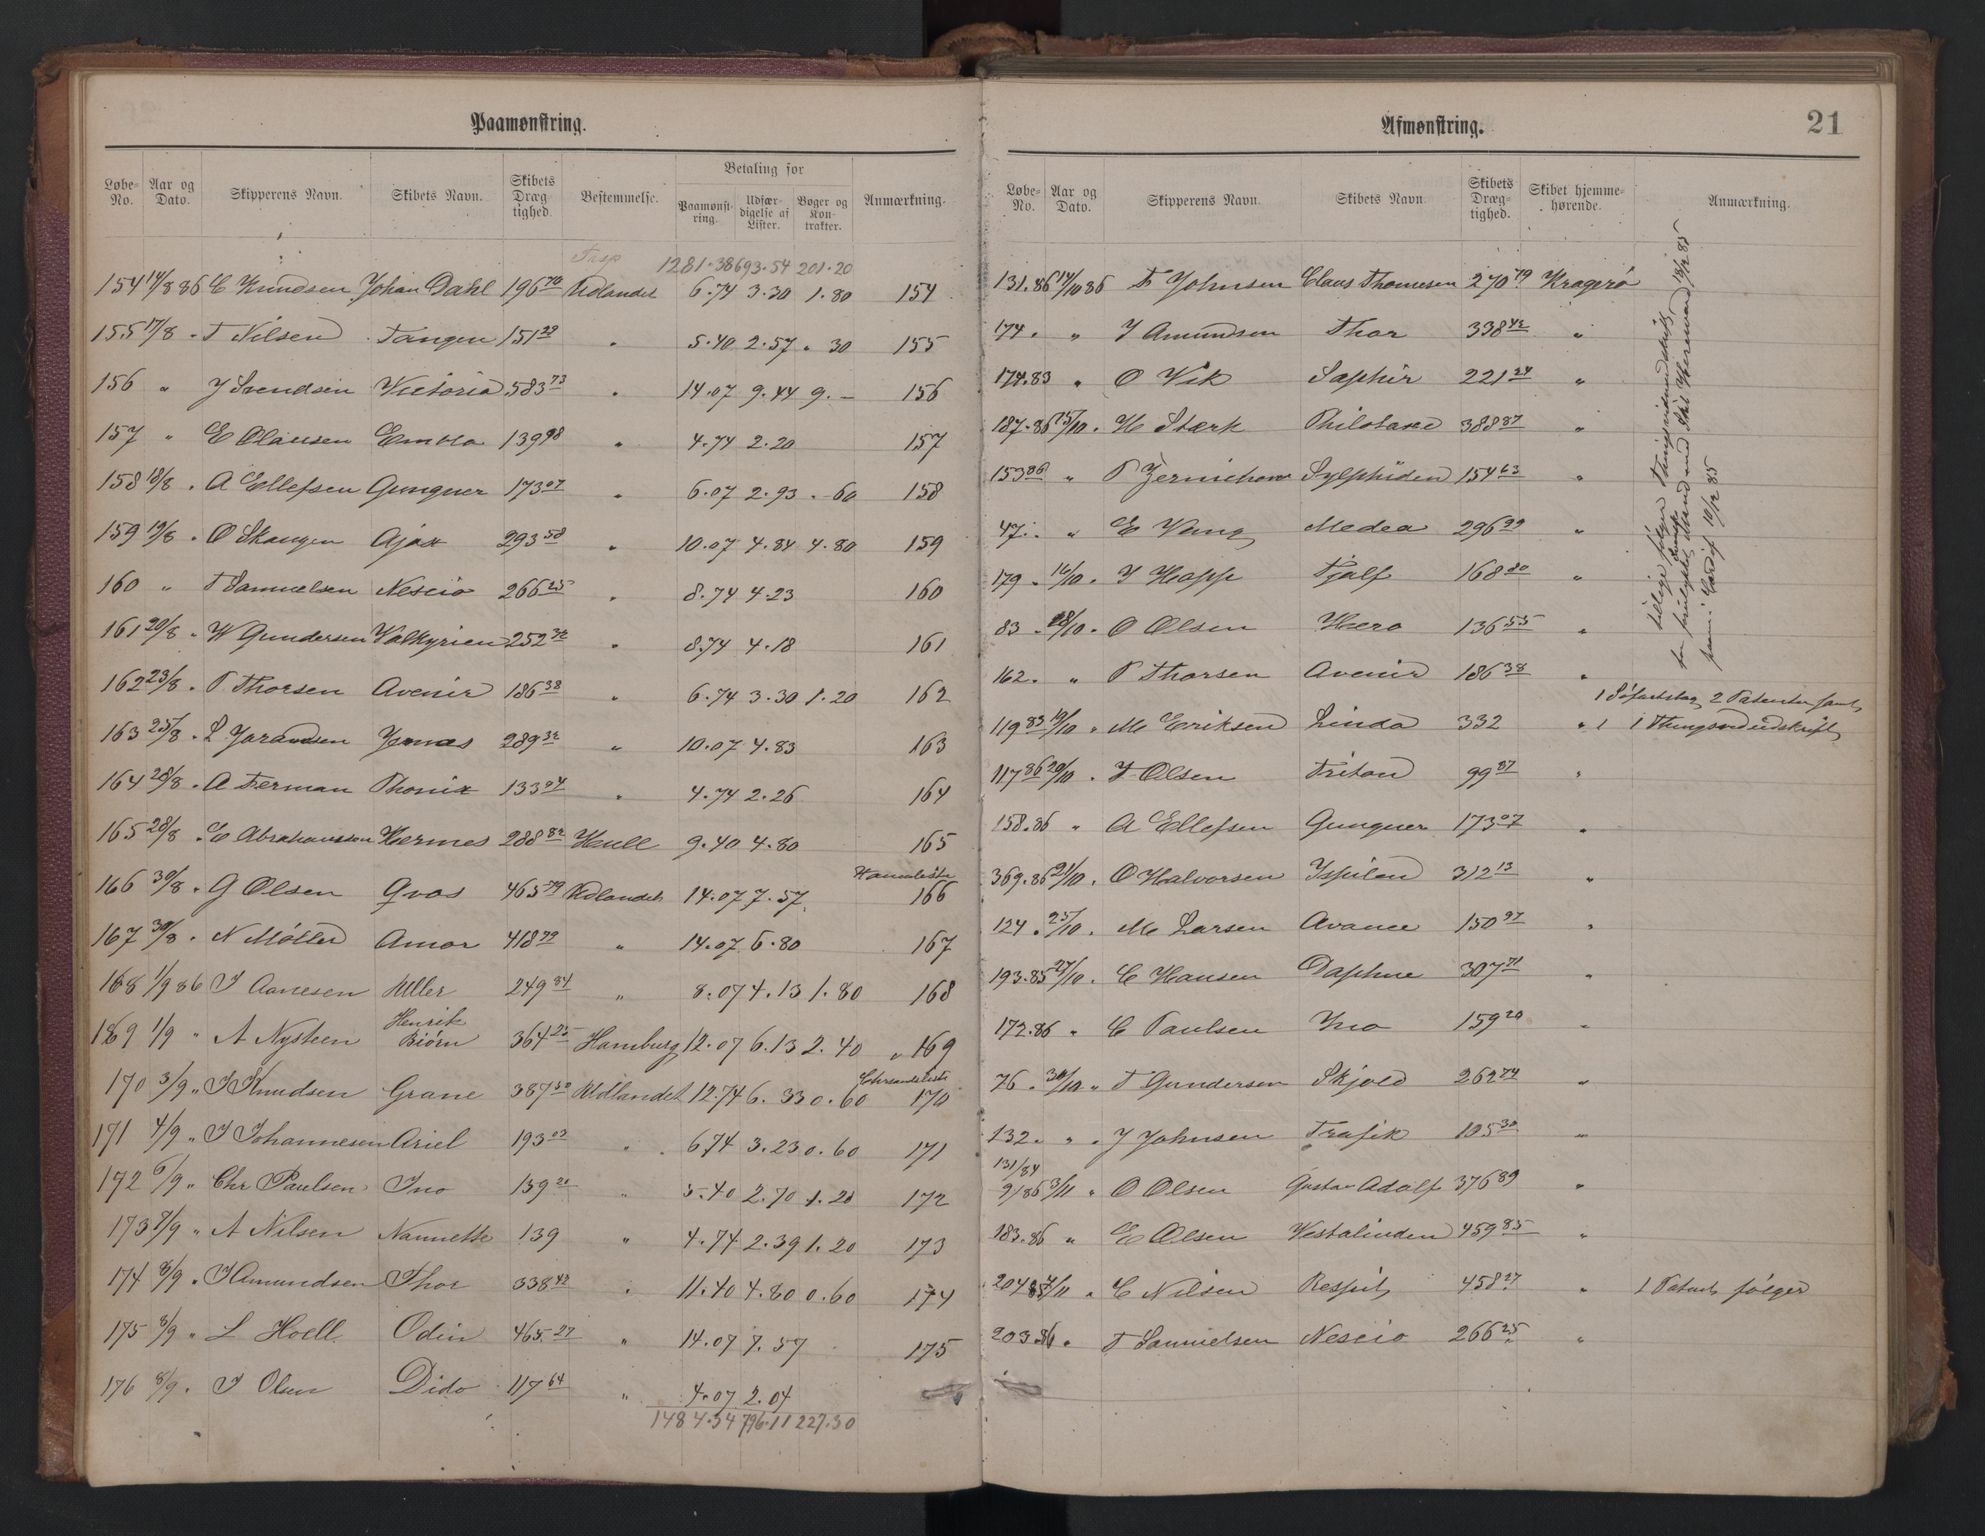 Paamønstring.
Løbe-No. Aar og Dato. Skipperens Navn. Skibets Navn. Skibets Dræg-tighed. Bestemmelse. Betaling for Paamønst-ring. Udfær-digelse af Lister. Bøger og Kon-trakter. Anmærkning.
Trsp 1281.38 693.54 201.20
154 14/8 86 C Knudsen Johan Dahl 196 70 Udlandet 6.74 3.30 1.80 154
155 17/8 . T Nilsen Tangen 151 29 " 5.40 2.57 . 30 155
156 " J Svendsen Victoria 583 73 " 14.07 9.44 9.— 156
157 " E Olausen Embla 139 98 " 4.74 2.20 157
158 18/8 . A Ellefsen Gungner 173 07 " 6.07 2.93 . 60 158
159 19/8 . O Skaugen Ajax 293 58 " 10.07 4.84 4.80 159
160 " T Samuelsen Nescio 266 25 " 8.74 4.23 160
161 20/8 " W Gundersen Valkyrien 252 32 " 8.74 4.18 161
162 23/8 . P Thorsen Avenir 186 38 " 6.74 3.30 1.20 162
163 25/8 . L Jorandsen Jernæs 289 32 " 10.07 4.83 163
164 28/8 . A Ferman Phønix 133 04 " 4.74 2.26 164
165 28/8 . E Abrahamssen Hermes 288 82 Hull 9.40 4.80 165
166 30/8 . G Olsen Qvos 465 79 Udlandet 14.07 7.57. 166
167 30/8 . N Møller Amor 418 79 " 14.07 6.80 167
168 1/9 86 J Aanesen Uller 249 84 " 8.07 4.13 1.80 168
169 1/9 " A Nysteen Henrik Biørn 364 25 Hamburg 12.07 6.13 2.40 " 169
170 3/9 " J Knudsen Grane 387 50 Udlandet 12.74 6.33 0.60 170
171 4/9 " J Johannesen Ariel 193 03 " 6.74 3.23 0.60 171
172 6/9 " Chr Paulsen Ino 159 20 " 5.40 2.70 1.20 172
173 7/9 " A Nilsen Nannette 139 " 4.74 2.39 1.20 173
174 8/9 " J Amundsen Thor 338 42 " 11.40 4.80 0.60 174
175 8/9 " L Hoell Odin 465 27 " 14.07 7.57 175
176 8/9 . J Olsen Dido 117 64 " 4.07 2.04
1484.34 796.11 227.30
Afmønstring. 21
Løbe-No. Aar og Dato. Skipperens Navn. Skibets Navn. Skibets Dræg-tighed. Skibet hjemme-hørende. Anmærkning.
131.86 14/10 86 F Johnsen Claus Thomesen 270 79 Kragerø
174 . " J Amundsen Thor 338 42 "
174.83 " O Vik Saphir 221 24 "
187.86 15/10 . H Stærk Philotaxe 388 87 "
153 86 " P Zernichow Sylphiden 154 63 "
47 . " E Vang Medea 296 99 "
179 . 16/10 . J Happ Fjalf 168 80 "
83 . 18/10 . O Olsen Hero 136 55 "
162. " P Thorsen Avenir 186 38 "
1 Søfartsbog, 2 Patenter samt
119 83 19/10 " M Eriksen Linda 332 " 1 1 Thingsvidneudskrift
117 86 20/10 . T Olsen Triton 99 87 "
158.86 " A Ellefsen Gungner 173 07 "
369.86 21/10 . O Halvorsen Ispilen 312 13 "
124 . 25/10 . M Larsen Avance 150 97 "
193.85 27/10 . C Hansen Daphne 307 71 "
172.86 " C Paulsen Ino 159 20 "
76 . 30/10 " T Gundersen Skjold 262 74 "
132. " . J Johnsen Trafik 195 30 "
131/84
9/86 3/11 " O Olsen Gustav Adolf 376 89 "
183.86 " E Olsen Vestalinden 459 85 "
204 85 4/11 " C Nilsen Respit 458 27 " 1 Patent følger
203.86 . T Samuelsen Nescio 266 25 "